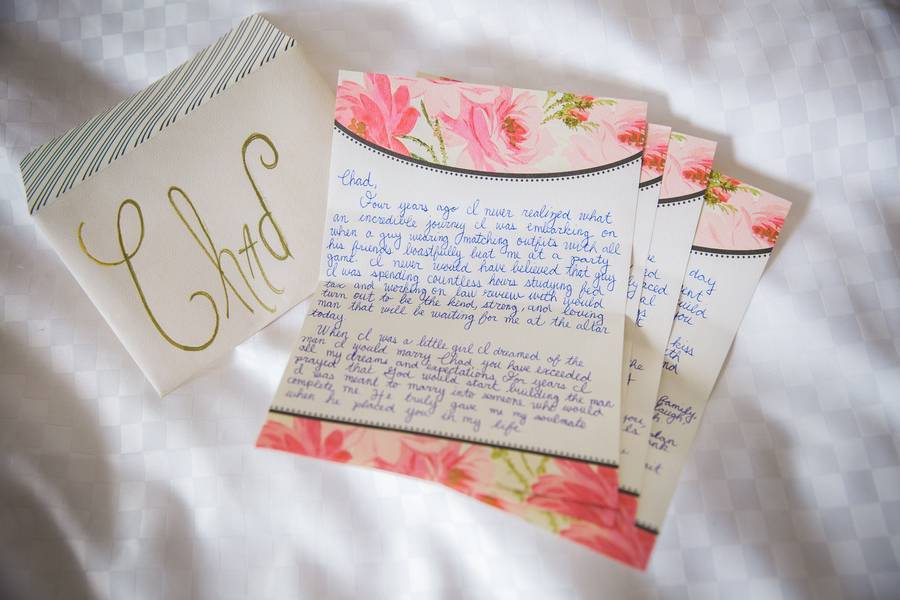 Chad
Chad,
Four years ago I never realized what
an incredible journey I was embarking on
when a guy wearing matching outfits with all
his friends boastfully beat me at a party
game. I never would have believed that guy
I was spending countless hours studying fed
tax and working on law review with would
turn out to be the kind, strong, and loving
man that will be waiting for me at the altar
today.
When I was a little girl I dreamed of the
man I would marry Chad you have exceeded
all my dreams and expectations. For years I
prayed that God would start building the man
I was meant to marry into someone who would
complete me He truly gave me my soulmate
when he placed you in my life
day
you
kiss
family,
laugh,